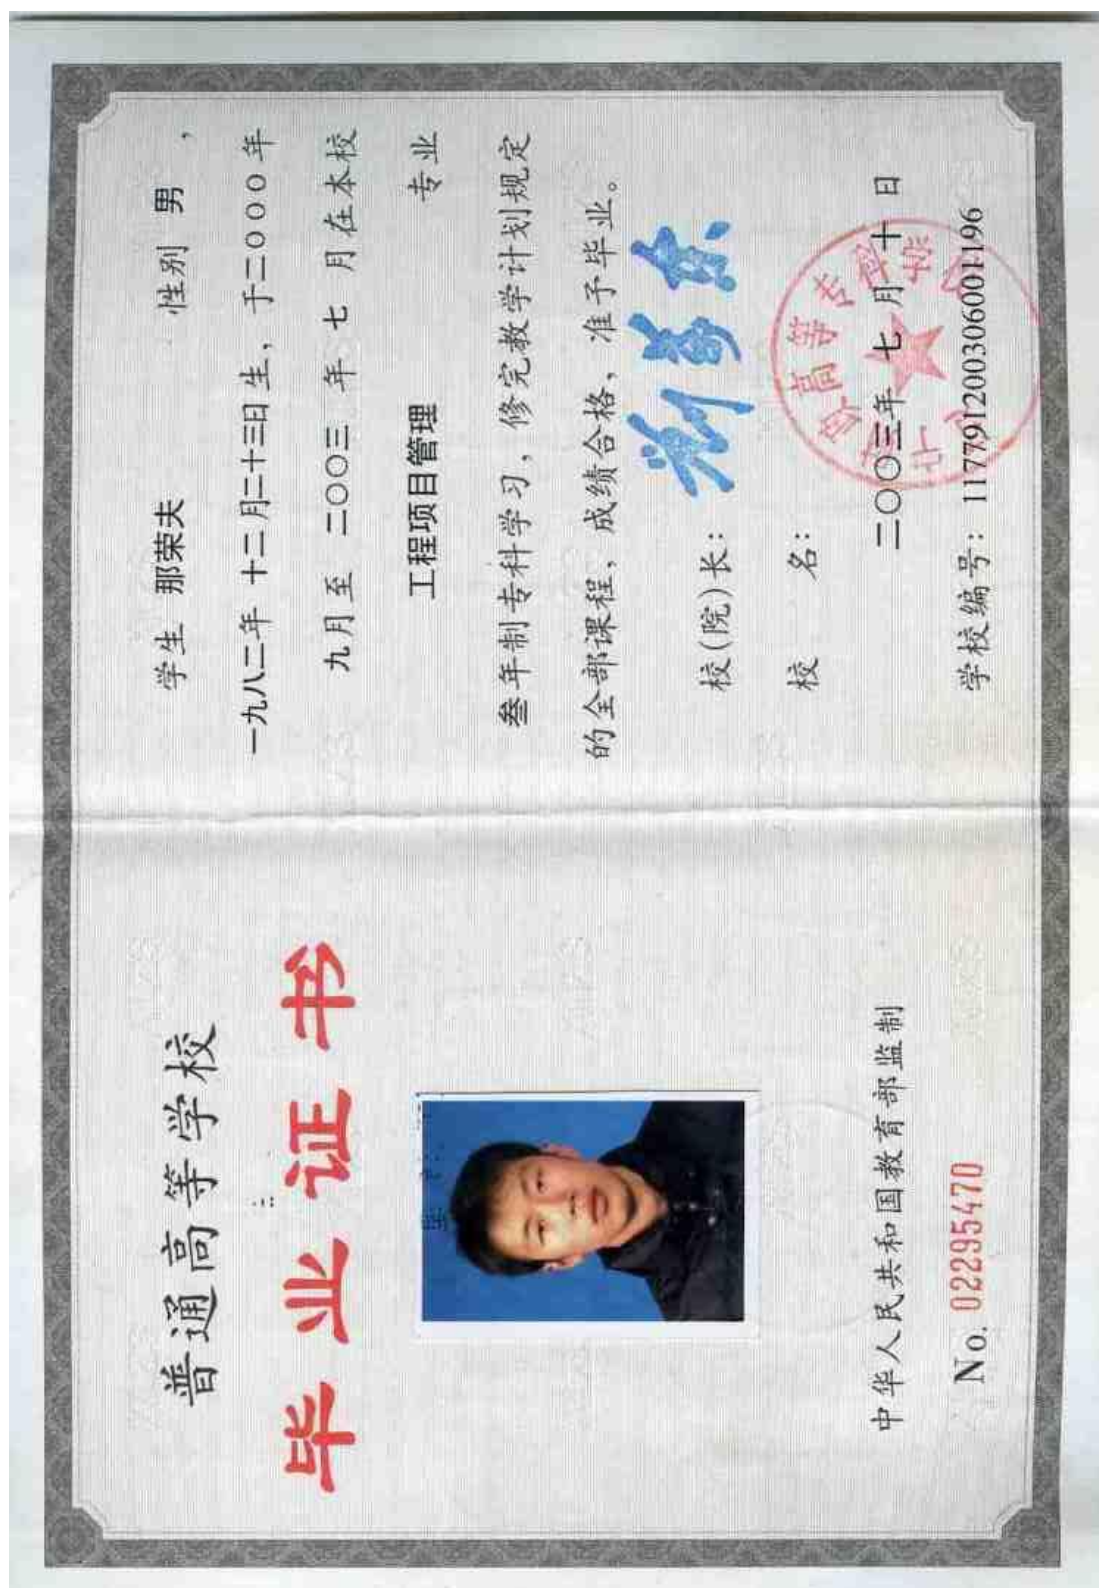 普通高等学校
毕业证书
中华人民共和国教育部监制
No. 02295470
学生 那荣夫 性别 男 ,
一九八二年 十二月二十三日生, 于二〇〇〇年
九月至 二〇〇三 年 七 月在本校
工程项目管理 专业
叁年制专科学习, 修完教学计划规定
的全部课程, 成绩合格, 准予毕业。
校(院)长:
校 名:
高等专科
二〇〇三年 七 月 十 日
学校编号: 117791200306001196